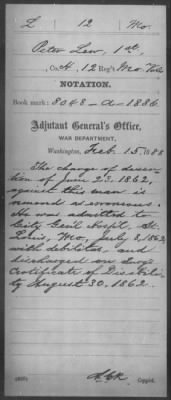 L 12 Mo.
Peter Lew, 1st,
, Co. H, 12 Reg't Mo. Vols
NOTATION.
Book mark: 8048-A-1886
Adjutant General's Office,
WAR DEPARTMENT,
Washington, Feb. 15, 1888
The charge of deser-
tion of June 23, 1862,
against this man is
removed as erroneous.
He was admitted to
City Gen'l Hospt., St.
Louis, Mo., July 8, 1862,
with debilitas, and
discharged on Surg's
Certificate of Disabili-
ty August 30, 1862.
Copyist.